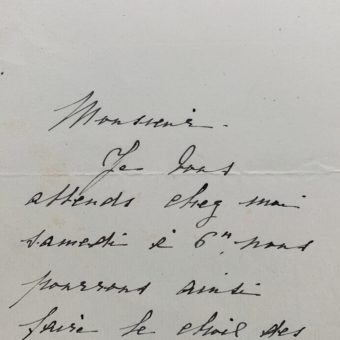 Monsieur.
Je vous
attends chez moi
samedi à 6h, nous
pourrons ainsi
faire le choix des